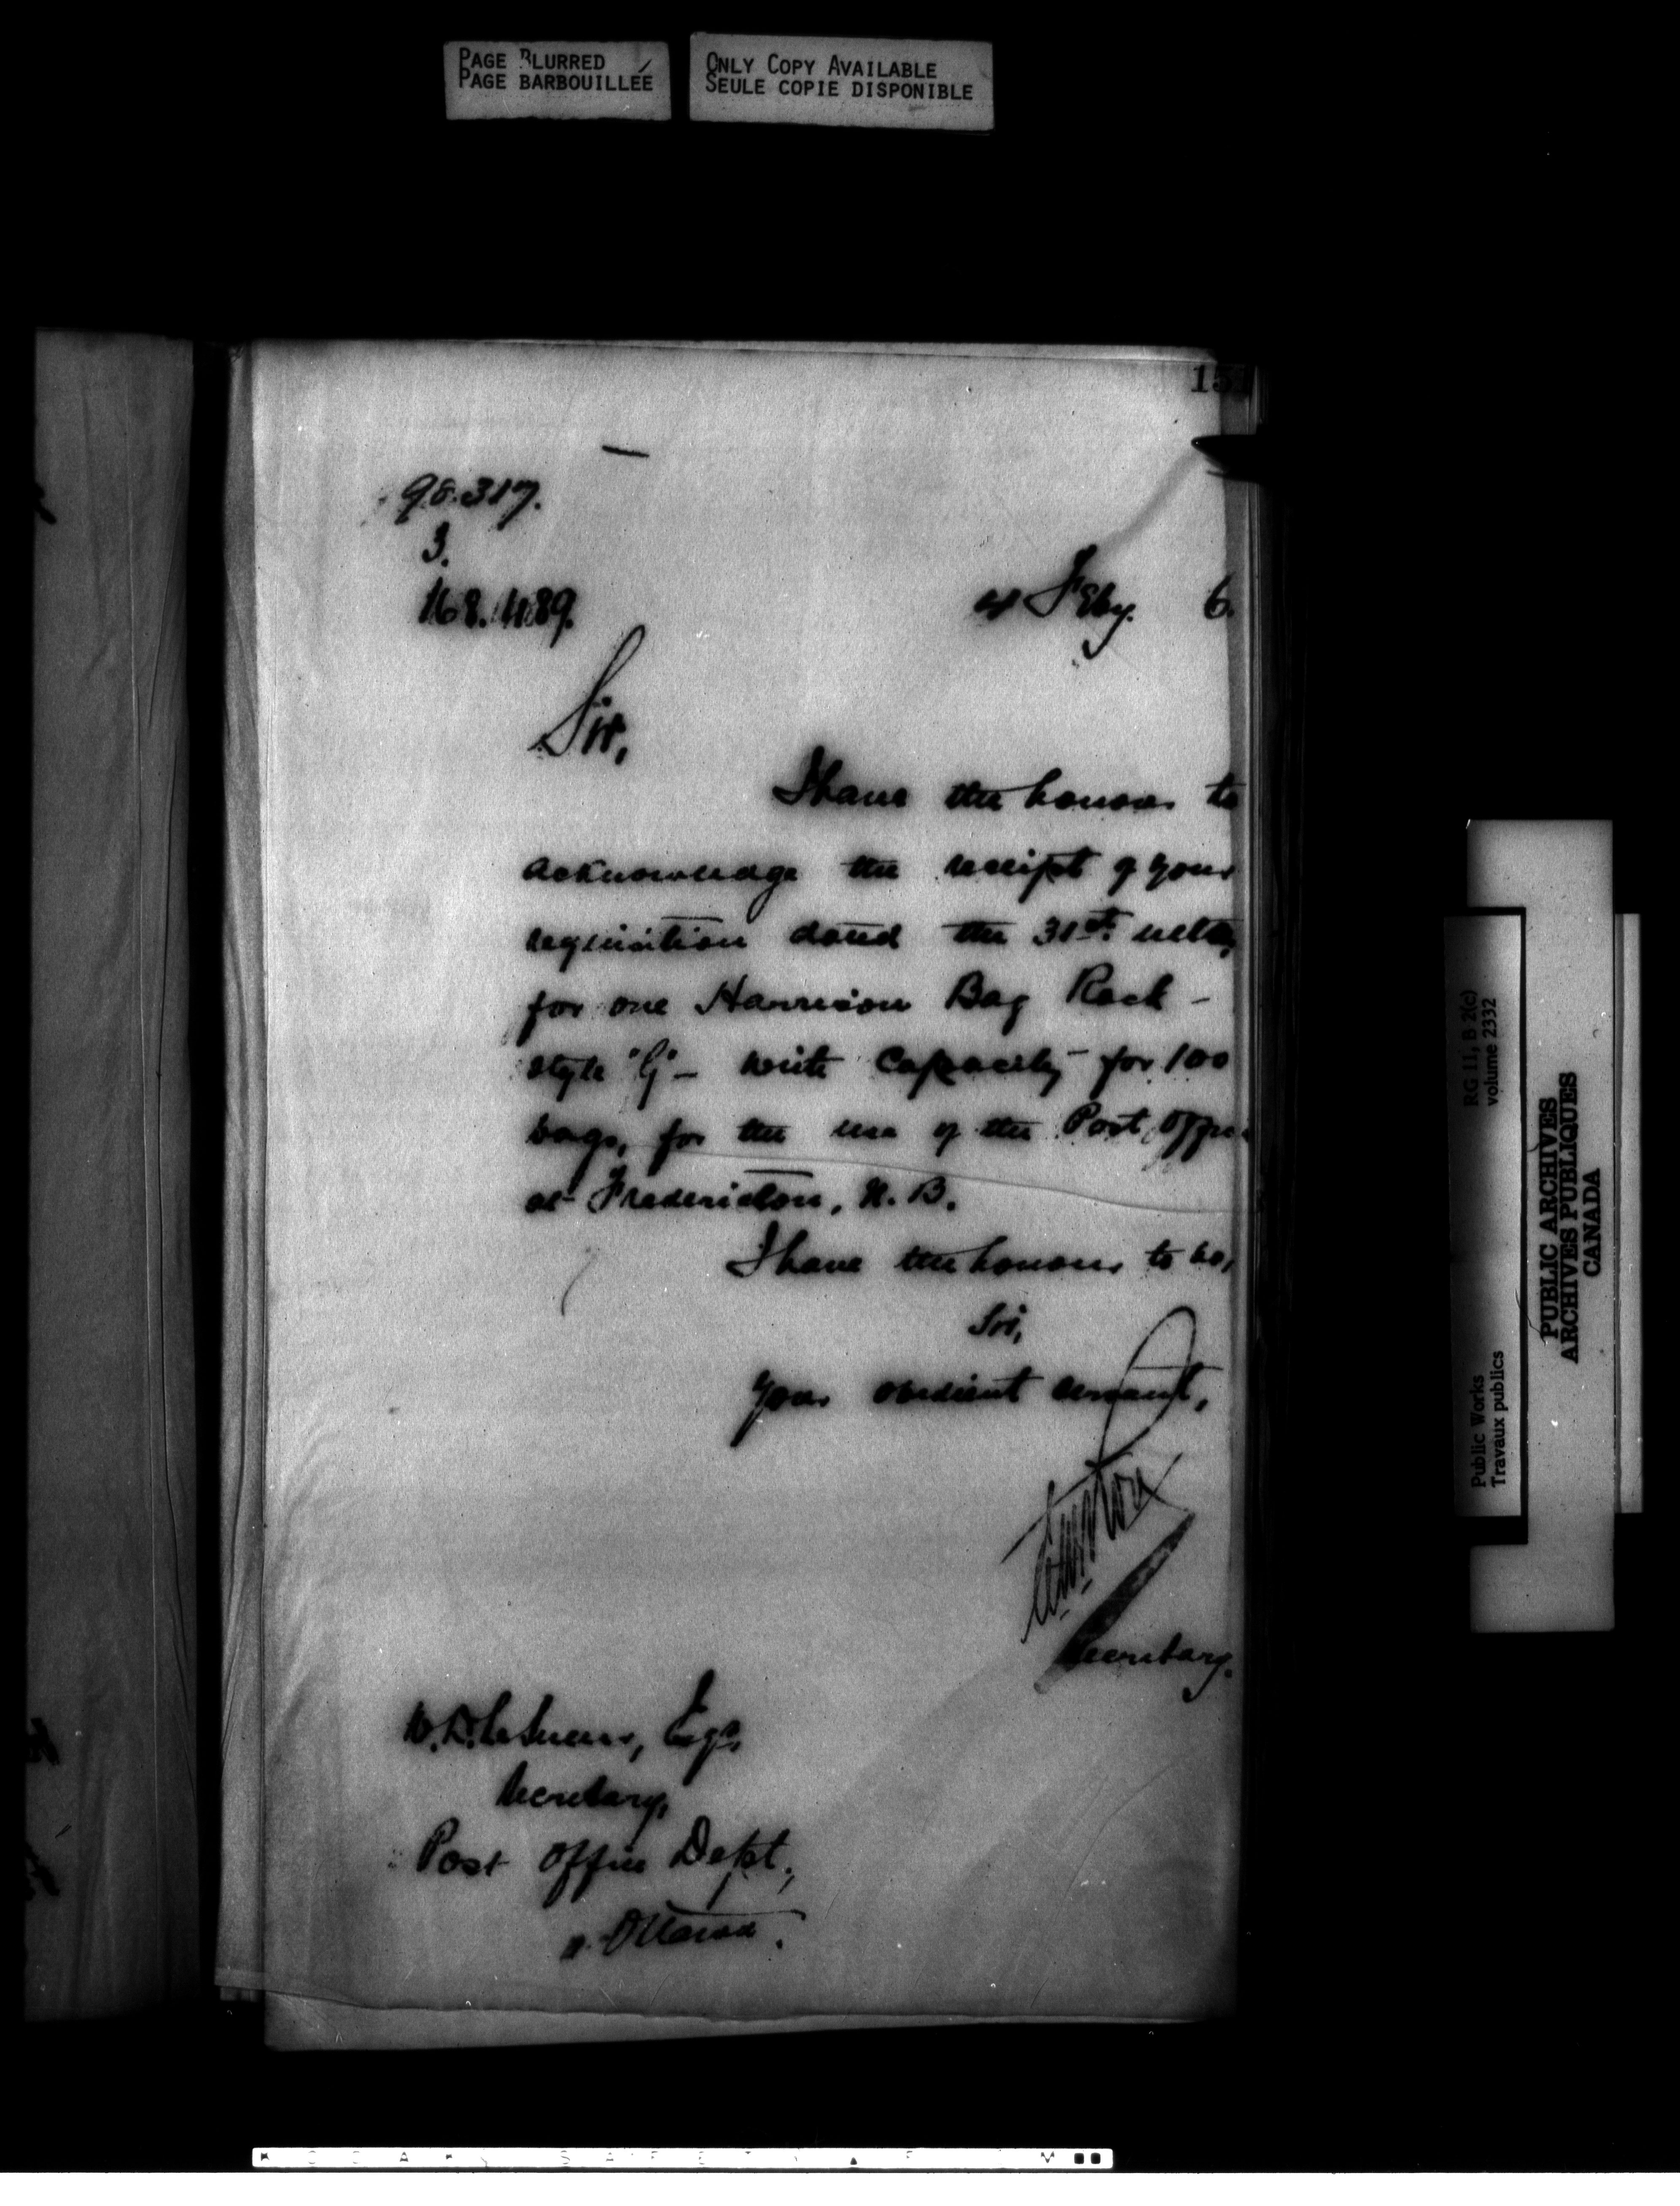 PAGE BLURRED
PAGE BARBOUILLÉE
ONLY COPY AVAILABLE
SEULE COPIE DISPONIBLE
98.317.
3.
168.489.
4 Feby. 6.
Sir,
I have the honour to
acknowledge the receipt of your
requisition dated the 31st. ulto,
for one Harrison Bag Rack -
style "G" - with capacity - for 100
bags, for the use of the Post Office
at Fredericton, N. B.
I have the honour to be,
Sir,
Your obedient servant,
Secretary.
W. D. LeSueur, Esq,
Secretary,
Post Office Dept.,
Ottawa.
RG 11, B 2(c)
volume 2332
Public Works
Travaux publics
PUBLIC ARCHIVES
ARCHIVES PUBLIQUES
CANADA